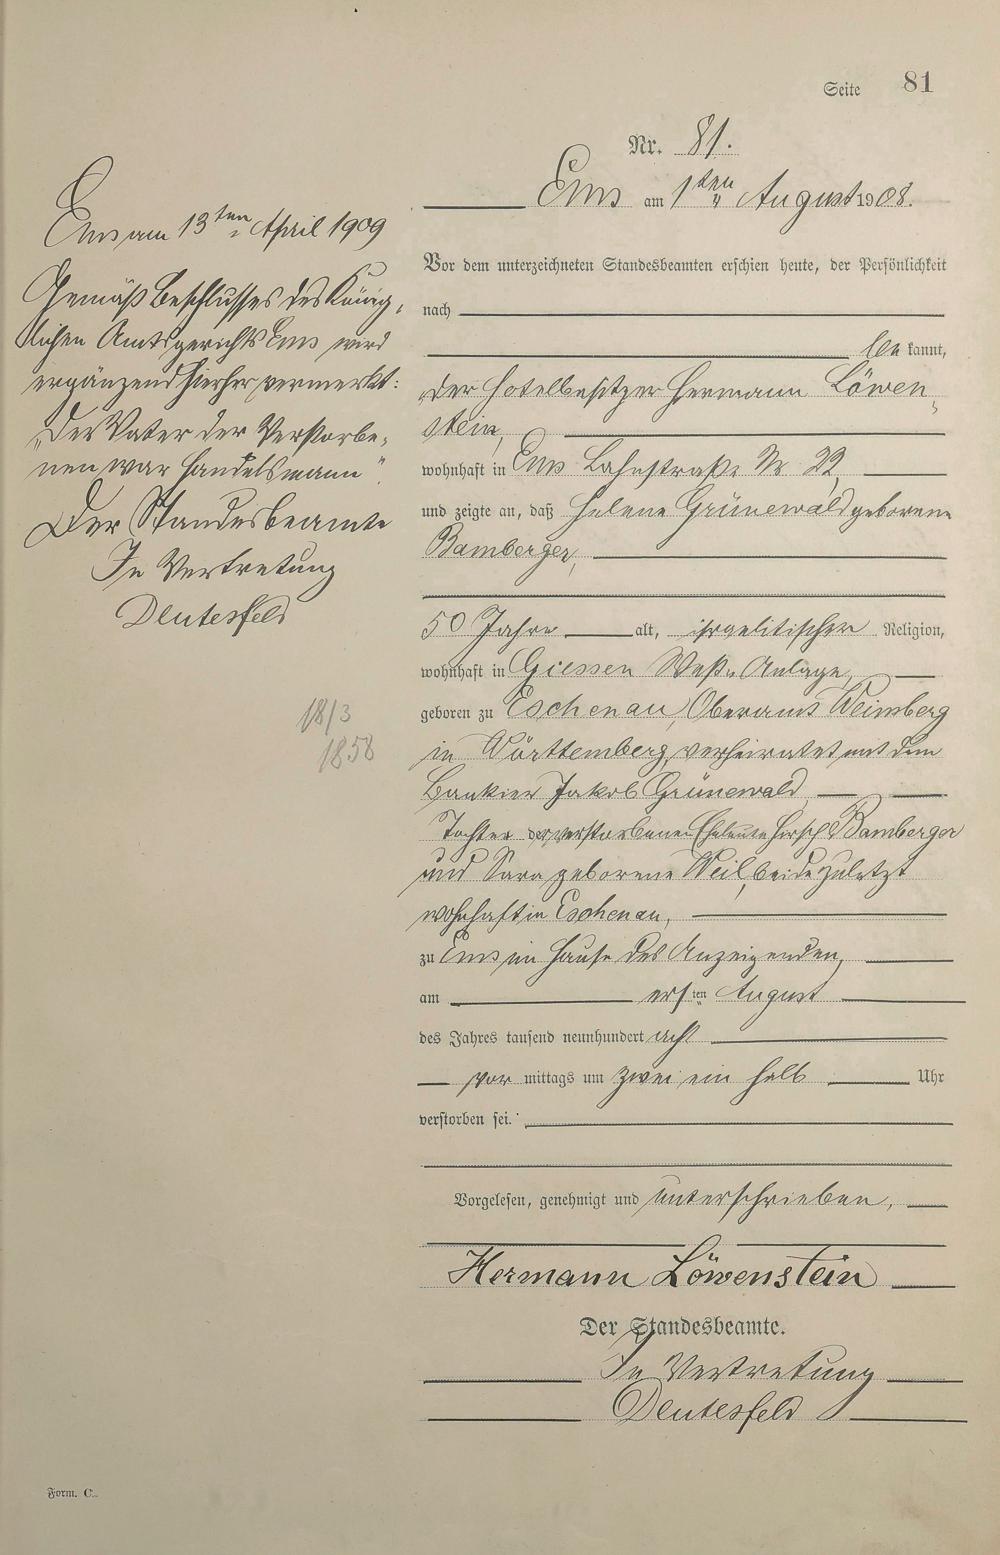 Seite 81
Nr. 81.
Ems am 1ten August 1908.
Vor dem unterzeichneten Standesbeamten erschien heute, der Persönlichkeit
nach
bekannt,
der Hotelbesitzer Hermann Löwen-
stein,
wohnhaft in Ems Lahnstraße Nr 22,
und zeigte an, daß Helene Grünewald geborene
Bamberger,
50 Jahre alt, israelitischer Religion,
wohnhaft in Giessen West-Anlage,
geboren zu Eschenau, Oberamt Weinsberg
in Württemberg, verheiratet mit dem
Bankier Jakob Grünewald
Tochter der verstorbenen Eheleute Hirsch Bamberger
und Sara geborene Weil, beide zuletzt
wohnhaft in Eschenau,
zu Ems im Hause des Anzeigenden,
am ersten August
des Jahres tausend neunhundert acht
vor mittags um zwei ein halb Uhr
verstorben sei.
Vorgelesen, genehmigt und unterschrieben,
Hermann Löwenstein
Der Standesbeamte.
In Vertretung
Deutesfeld
Ems am 13ten April 1909
Gemäß Beschlusses des König-
lichen Amtsgerichts Ems wird
ergänzend hierher vermerkt:
„Der Vater der Verstorbe-
nen war Handelsmann".
Der Standesbeamte
In Vertretung
Deutesfeld
18/3
1858
Form. C.